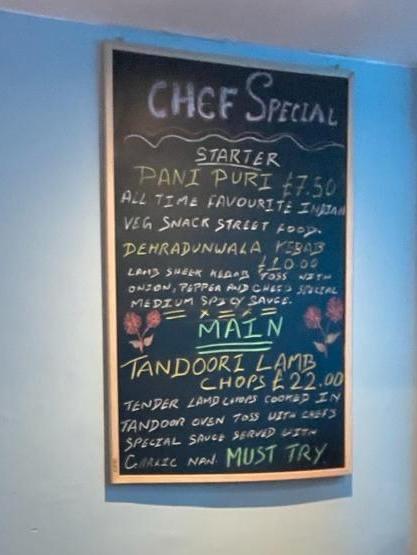 CHEF SPECIAL
STARTER
PANI PURI £7.50
ALL TIME FAVOURITE INDIAN
VEG SNACK STREET FOOD.
DEHRADUNWALA KEBAB
£10.00
LAMB SHEEK KEBAB TOSS WITH
ONION, PEPPER AND CHEF'S SPECIAL
MEDIUM SPICY SAUCE.
MAIN
TANDOORI LAMB
CHOPS £22.00
TENDER LAMB CHOPS COOKED IN
TANDOOR OVEN TOSS WITH CHEF'S
SPECIAL SAUCE SERVED WITH
GARLIC NAN. MUST TRY.